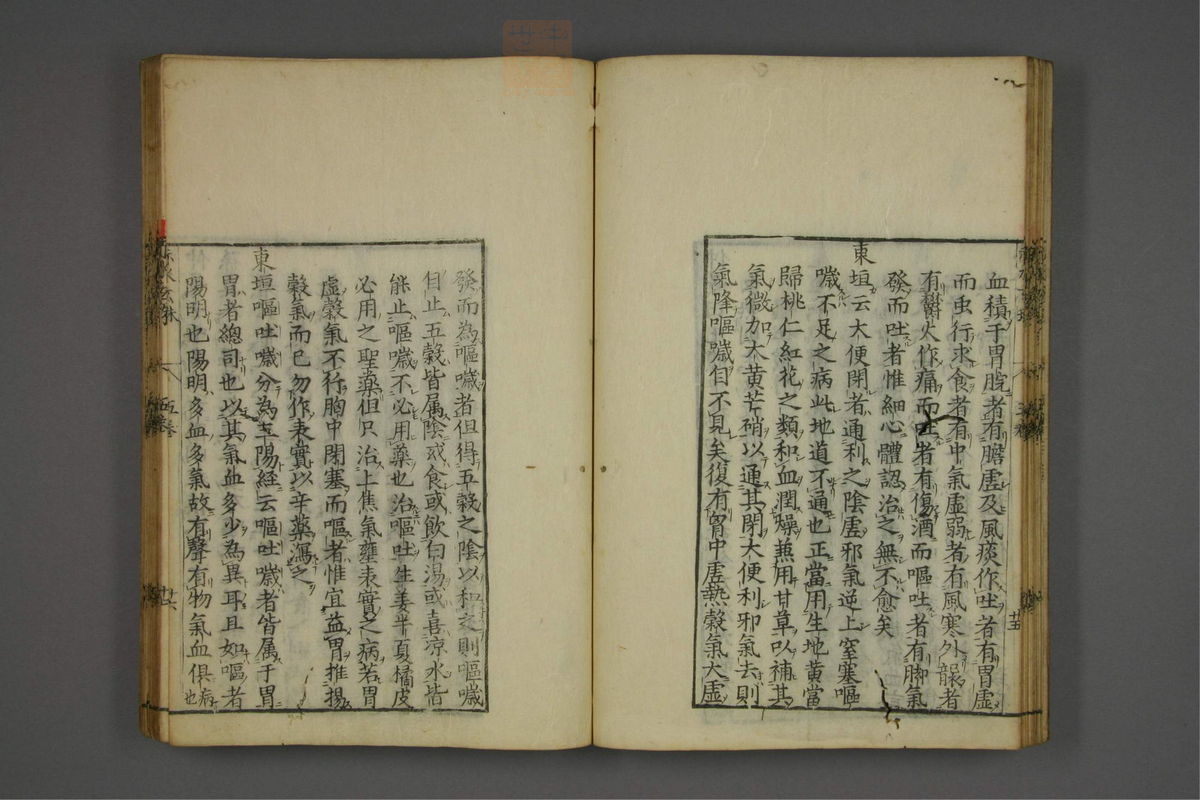 血積于胃脘者有膽虚及風痰作吐者有胃虚
而虫行求食者有中氣虚弱者有風寒外襲者
有鬱火作痛而吐者有傷酒而嘔吐者有脚氣
發而吐者惟細心體認治之無不愈矣
東垣云大便閉者通利之陰虚邪氣逆上窒塞嘔
噦不足之病此地道不通也正當用生地黄當
歸桃仁紅花之類和血潤燥兼用甘草以補其
氣微加大黄芒硝以通其閉大便利邪氣去則
氣降嘔噦自不見矣復有胃中虚熱穀氣大虚
廿五
發而為嘔噦者但得五穀之陰以和之則嘔噦
自止五穀皆属陰或食或飲白湯或喜凉水皆
能止嘔噦不必用藥也治嘔吐生姜半夏橘皮
必用之聖藥但只治上焦氣壅表實之病若胃
虚穀氣不行胸中閉塞而嘔者惟宜益胃推揚
穀氣而已勿作表實以辛藥瀉之
東垣嘔吐噦分為三陽経云嘔吐噦者皆属于胃
胃者總司也以其氣血多少為異耳且如嘔者
陽明也陽明多血多氣故有聲有物氣血俱病也
五卷
廿六